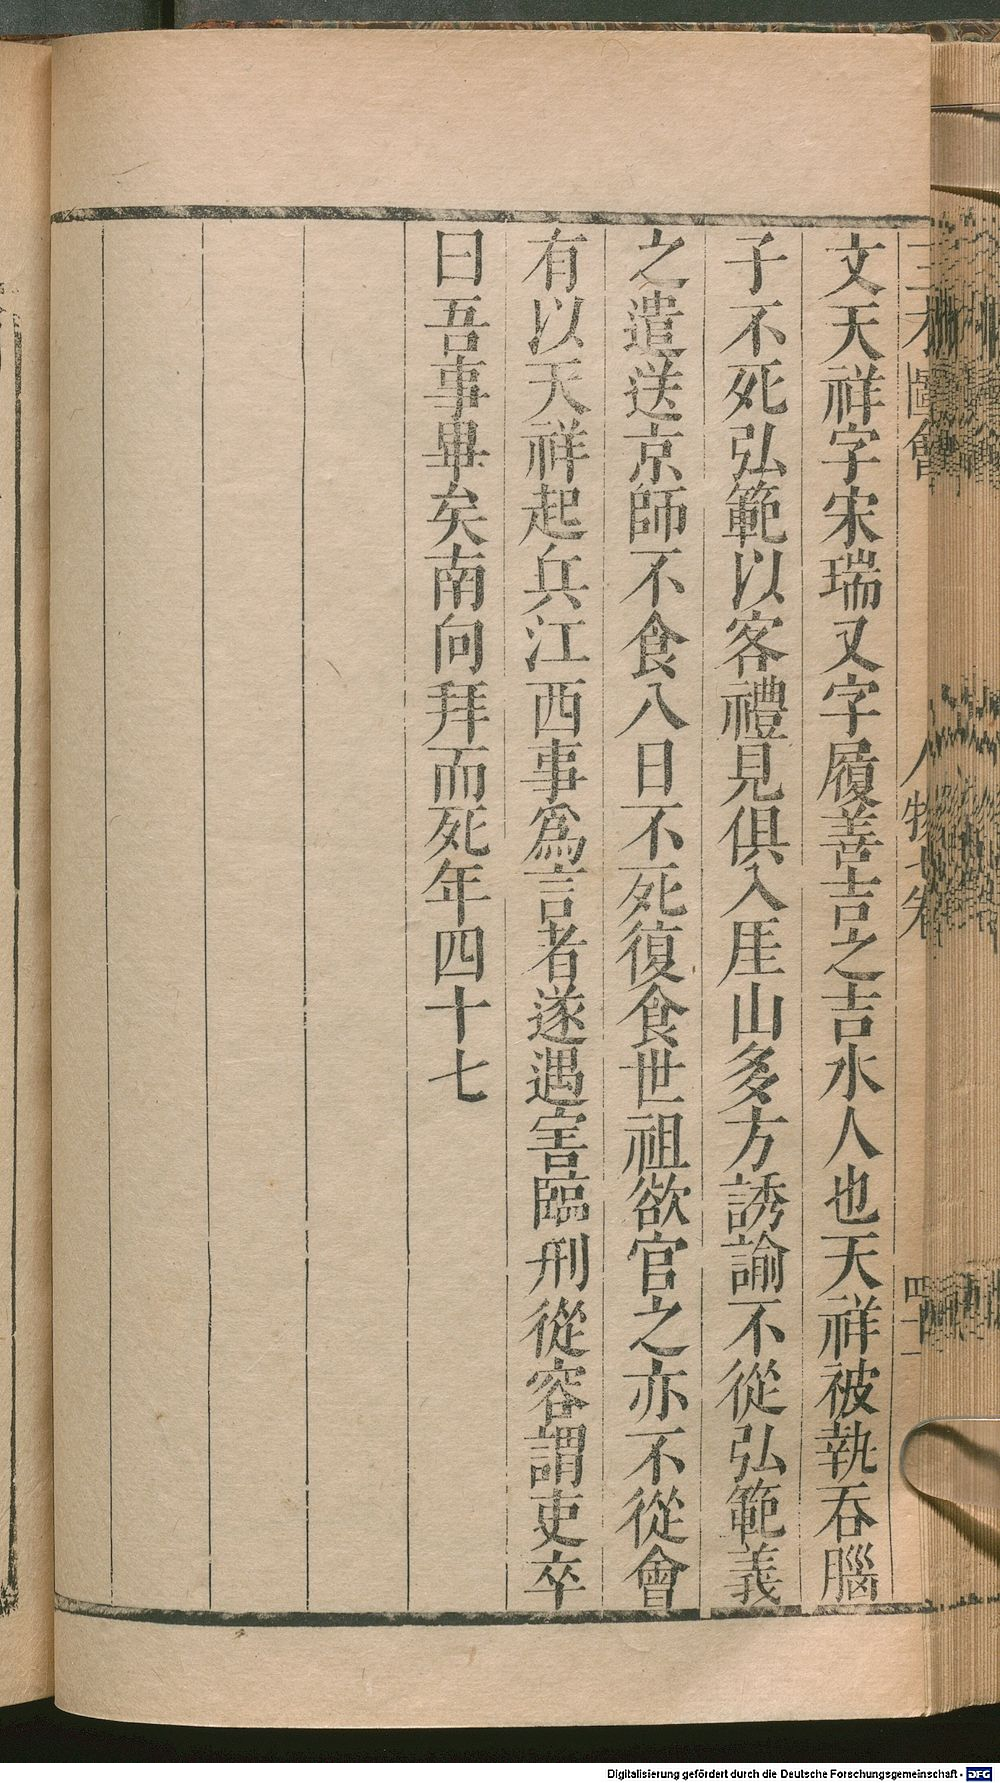 三才圖會 人物七卷 四十一
文天祥字宋瑞又字履善吉之吉水人也天祥被執吞腦
子不死弘範以客禮見俱入厓山多方誘諭不從弘範義
之遣送京師不食八日不死復食世祖欲官之亦不從會
有以天祥起兵江西事爲言者遂遇害臨刑從容謂吏卒
曰吾事畢矣南向拜而死年四十七
Digitalisierung gefördert durch die Deutsche Forschungsgemeinschaft - DFG